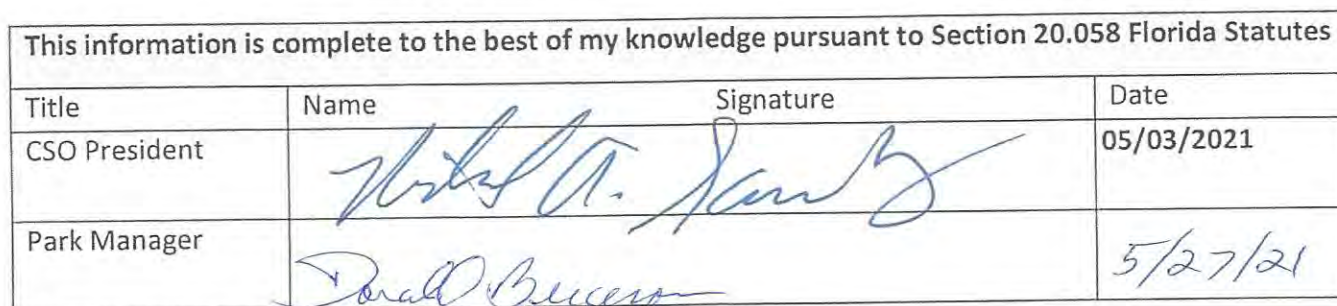 This information is complete to the best of my knowledge pursuant to Section 20.058 Florida Statutes
Title Name Signature Date
CSO President A. 05/03/2021
Park Manager Donald 5/27/21